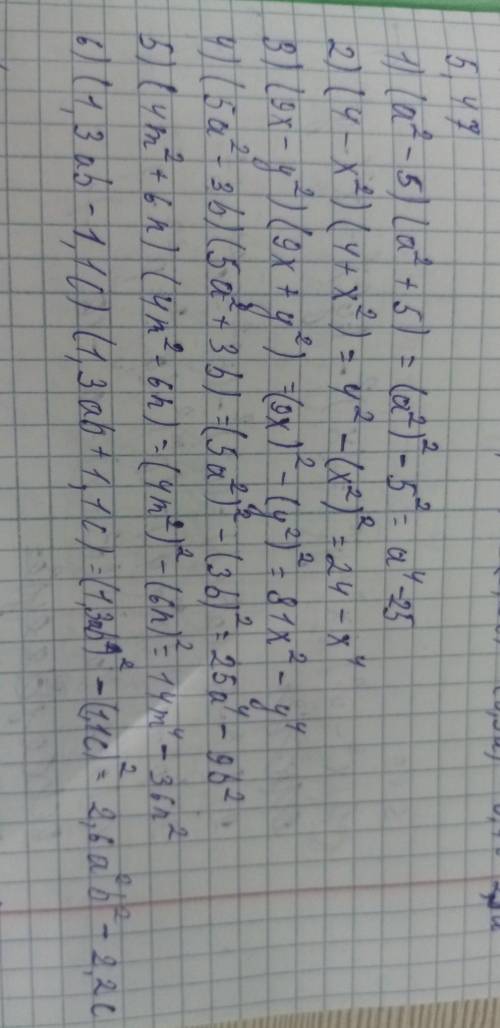 5,47
1) (a² - 5) (a² + 5) = (a²)² - 5² = a⁴ - 25
2) (4 - x²) (4 + x²) = 4² - (x²)² = 24 - x⁴
3) (9x - y²) (9x + y²) = (9x)² - (y²)² = 81x² - y⁴
4) (5a² - 3b) (5a² + 3b) = (5a²)² - (3b)² = 25a⁴ - 9b²
5) (4m² + 6n) (4n² - 6n) = (4m²)² - (6n)² = 14m⁴ - 36n²
6) (1,3ab - 1,1c) (1,3ab + 1,1c) = (1,3ab)² - (1,1c)² = 2,6a²b² - 2,2c